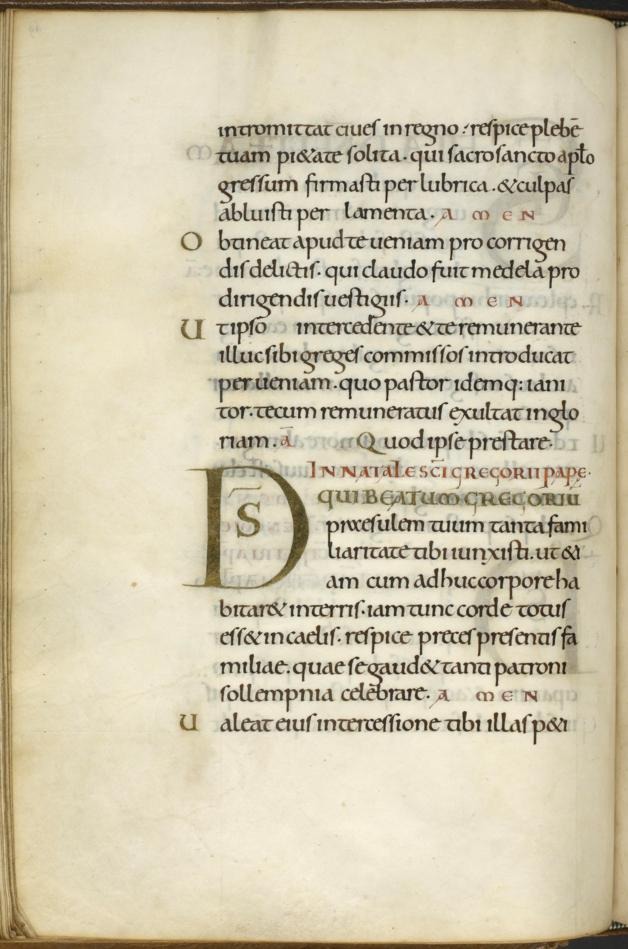 intromittat ciues in regno · respice plebē
tuam pi&ate solita · qui sacrosancto apło
gressum firmasti per lubrica · &culpas
abluisti per lamenta · A M E N
O btineat apud te ueniam pro corrigen
dis delictis · qui claudo fuit medela pro
dirigendis uestigiis · A M E N
U t ipso intercedente & te remunerante
illuc sibi greges commissos introducat
per ueniam · quo pastor idemq: iani
tor · tecum remuneratus exultat in glo
riam · ā Quod ipse prestare ·
IN NATALE SC̄I GREGORII PAPE ·
DS̄ QUI BEATUM GREGORIU
præsulem tuum tanta fami
liaritate tibi iunxisti · ut &i
am cum adhuc corpore ha
bitar& in terris · iam tunc corde totus
ess& in caelis · respice preces presentis fa
miliae · quae se gaud& tanti patroni
sollempnia celebrare · A M E N
U aleat eius intercessione tibi illas p&i